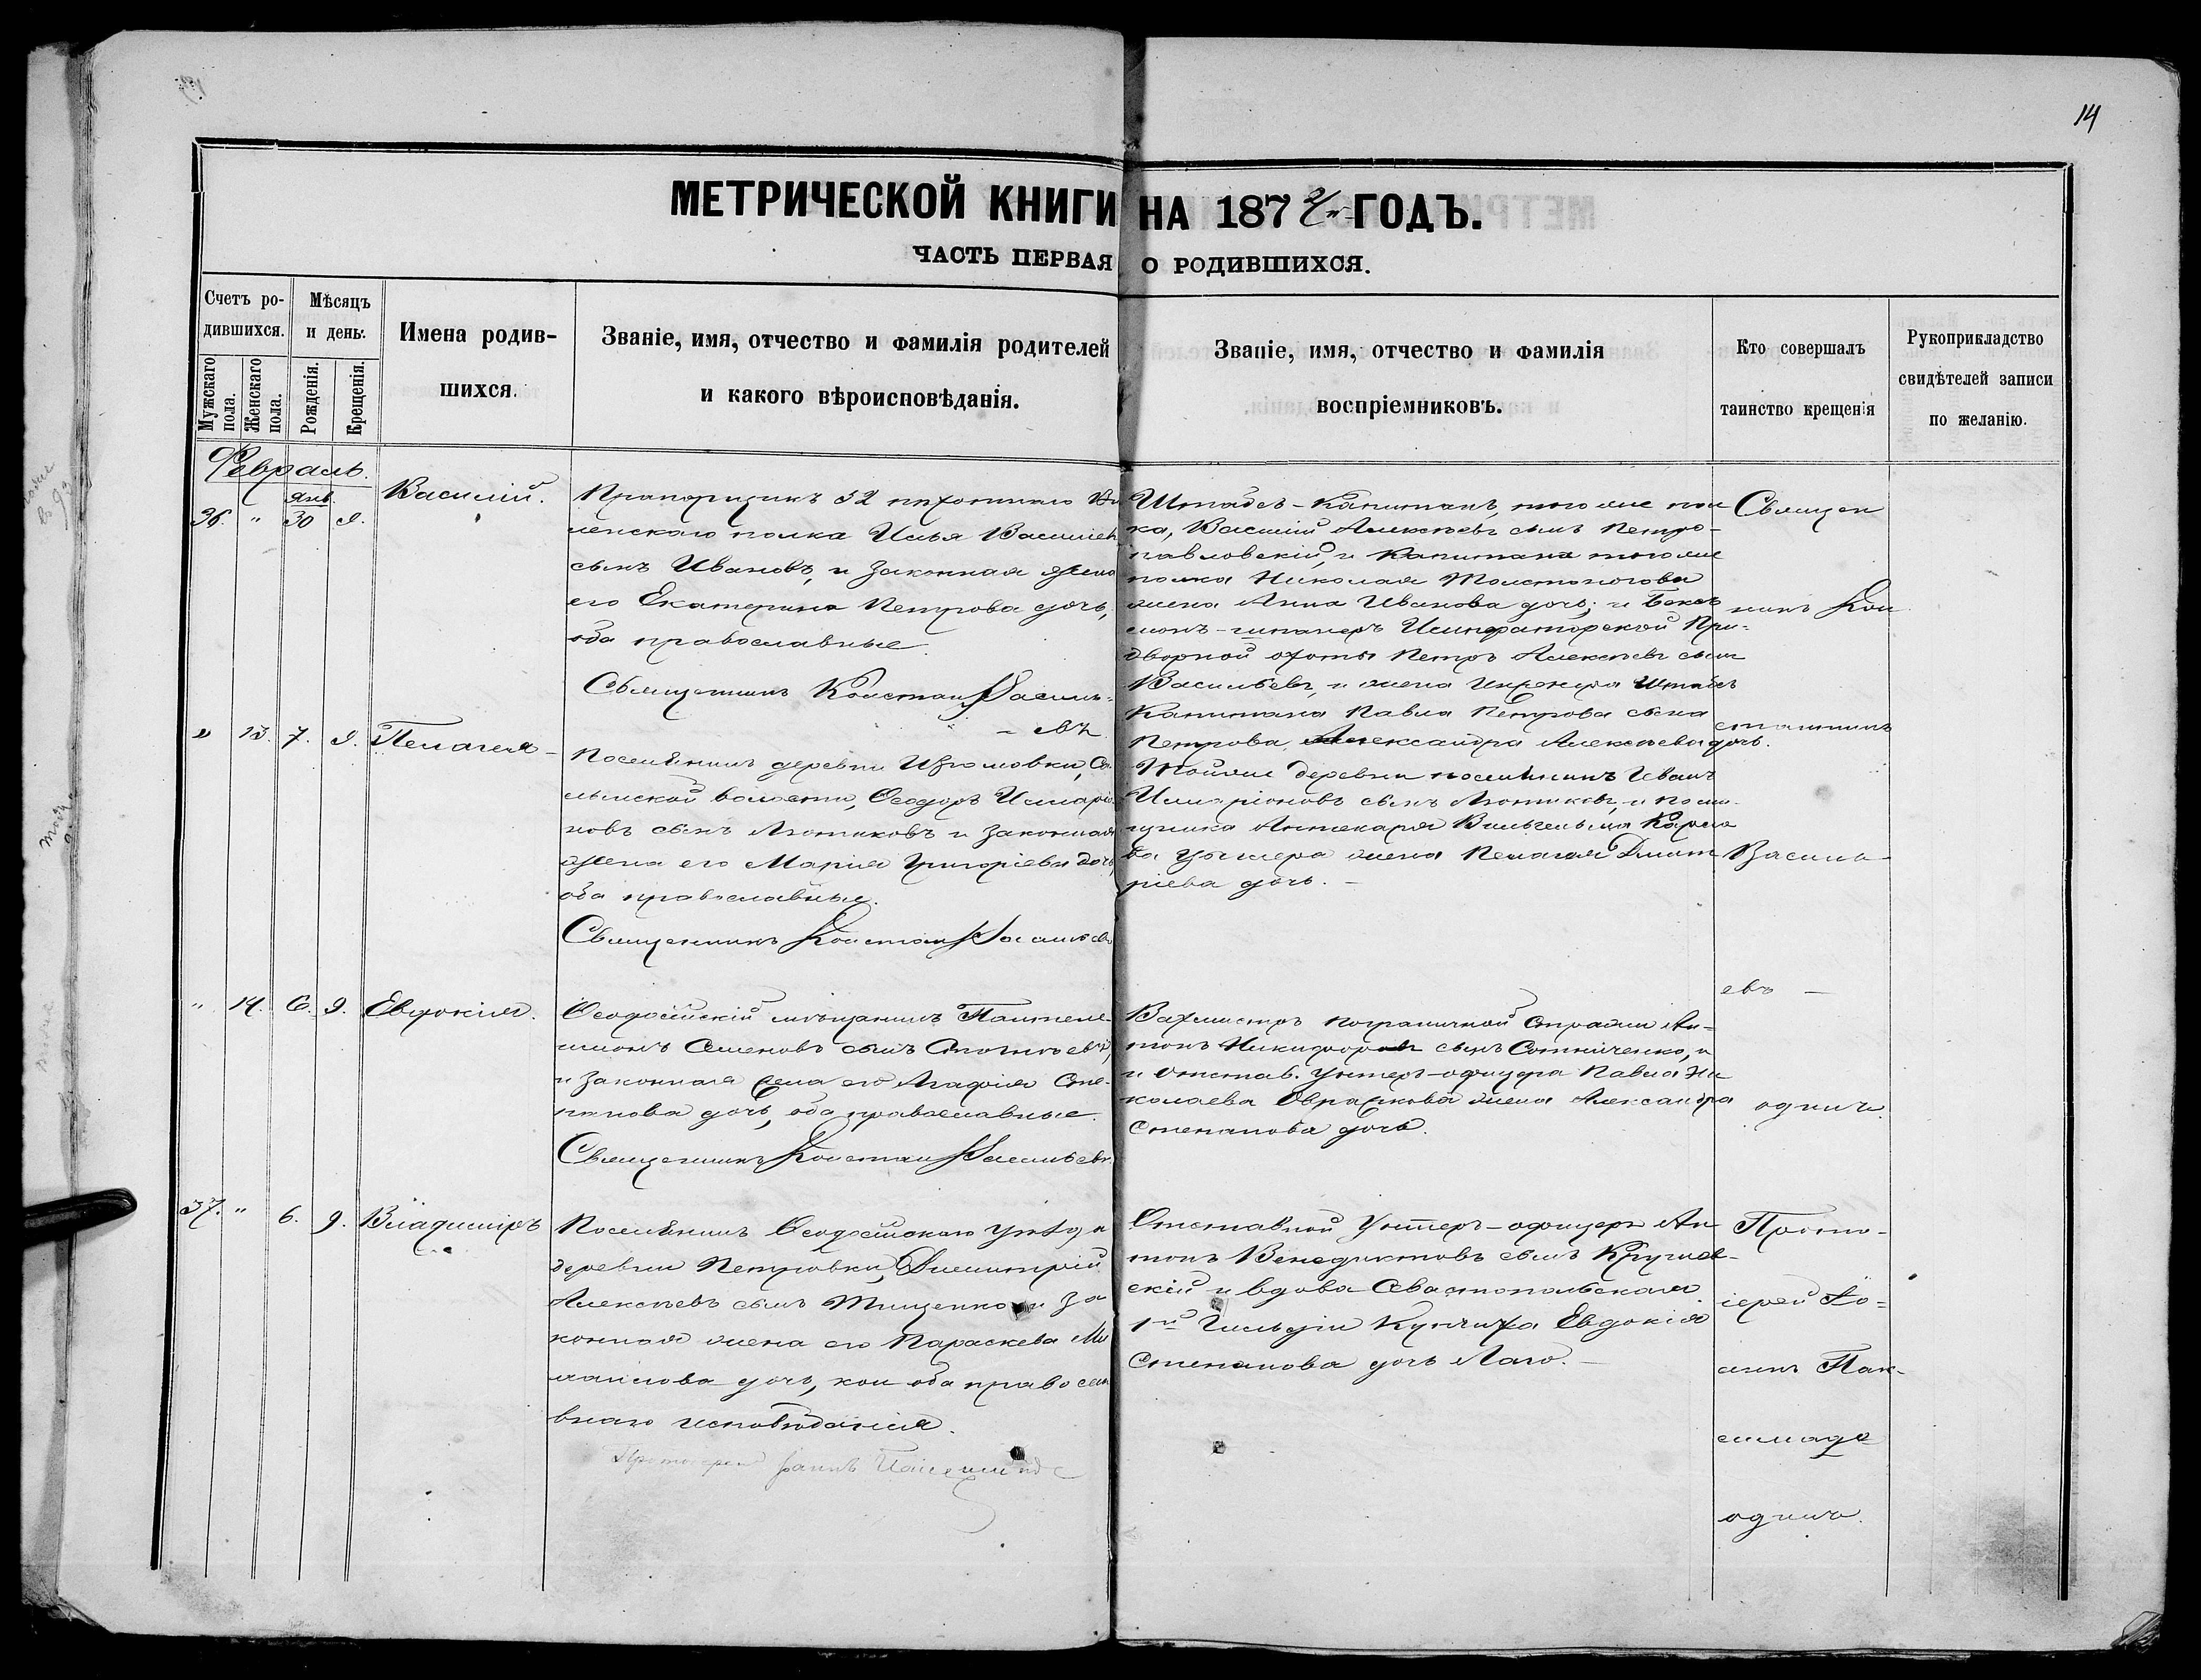 14
МЕТРИЧЕСКОЙ КНИГИ НА 1872 ГОДЪ.
ЧАСТЬ ПЕРВАЯ О РОДИВШИХСЯ.
Счетъ ро-
дившихся.
Мужскаго пола.
Женскаго пола.
Мѣсяцъ
и день.
Рожденія.
Крещенія.
Имена родив-
шихся.
Званіе, имя, отчество и фамилія родителей
и какого вѣроисповѣданія.
Званіе, имя, отчество и фамилія
воспріемниковъ.
Кто совершалъ
таинство крещенія
Рукоприкладство
свидѣтелей записи
по желанію.
Февраль.
Янв.
36. " 30 9.
Василій.
Прапорщикъ 52 пѣхотнаго Ви
ленскаго полка Илья Васильев
сынъ Ивановъ, и законная жена
его Екатерина Петрова дочь,
оба православные.
Священникъ Констан. Василь-
-евъ
Штабсъ-Капитанъ, того же пол
ка, Василій Алексѣевъ сынъ Петро-
павловскій, и Капитана того же
полка Николая Толстоногова
жена Анна Иванова дочь; и
Императорской При-
дворной охоты Петръ Алексѣевъ сынъ
Васильевъ, и жена Инженера Штабсъ
Капитана Павла Петрова сына
Петрова, Александра Алексѣева дочь.
" 13. 7. 9.
Пелагея
Поселянинъ деревни Изюмовки, Са
лынской волости, Ѳеодоръ Илларіо
новъ сынъ Лютиковъ и законная
жена его Марія Григоріева дочь,
оба православные.
Священникъ Констан Васильевъ
Тойже деревни поселянинъ Иванъ
Илларіоновъ сынъ Лютиковъ, и
Аптекаря Вильгельма Карло
ва жена Пелагея Димит
ріева дочь. -
" 14. 6. 9.
Евдокія.
Ѳеодосійскій мѣщанинъ Пантеле-
имонъ Семеновъ сынъ
и законная жена его Агафія Сте-
панова дочь, оба православные.
Священникъ Констан Васильевъ
Вахмистръ пограничной стражи Ан-
тонъ Никифоровъ сынъ Сотниченко, и
и отстав. Унтеръ-офицера Павла Ни
колаева Овражкова жена Александра
Степанова дочь.
37. " 6. 9.
Владиміръ
Поселянинъ Ѳеодосійскаго уѣзда
деревни Петровки, Димитрій
Алексѣевъ сынъ Тищенко и за
конная жена его Параскева Ми
хаилова дочь, кои оба православ
внаго исповѣданія.
Протоіерей Іоаннъ
Отставной Унтеръ-офицеръ Ан
тонъ Венедиктовъ сынъ
скій и вдова Севастопольская
1й Гильдіи Купчиха Евдокія
Степанова дочь Лаго. -
Священ
никъ Кон
стантинъ
Василь-
евъ -
одничъ.
Прото-
іерей Іо=
аннъ Пак-
симаде
одничъ.